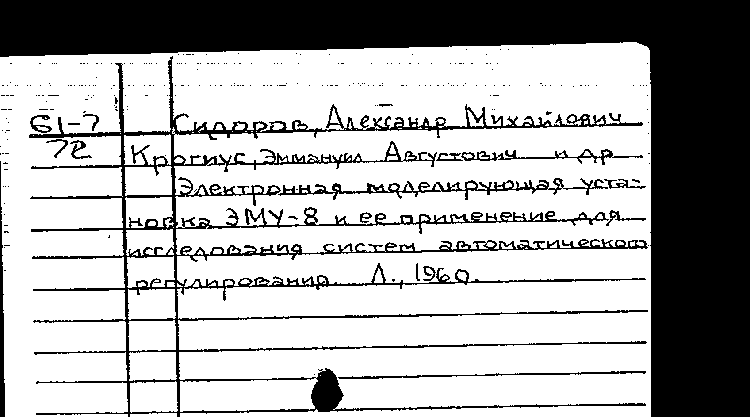 61-7 Сидоров, Александр Михайлович
72 Крогиус, Эммануил Августович и др
Электронная моделирующая уста-
новка ЭМУ-8 и ее применение для
исследования систем автоматического
регулирования. Л., 1960.